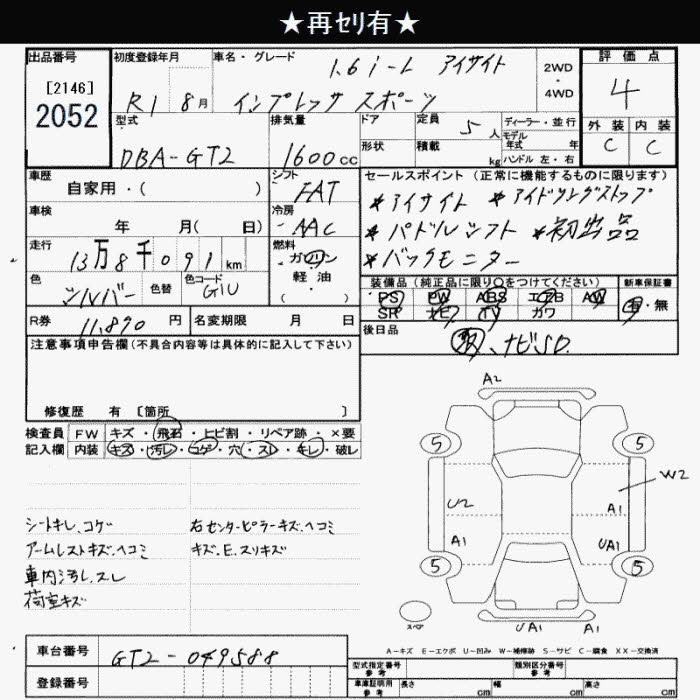 ★再ｾﾘ有★
出品番号
[2146]
2052
初度登録年月
R1 8月
車名・グレード
1.6i-L アイサイト
インプレッサ スポーツ
2WD
・
4WD
評価点
4
外装 内装
C C
型式
DBA-GT2
排気量
1600cc
ドア
形状
定員 5人
積載 kg
ディーラー・並行
モデル
年式 年
ハンドル 左・右
車歴
自家用・( )
シフト
FAT
車検
年 月( 日)
冷房
AAC
走行
13万8千091km
燃料
ガソリン
軽油
・( )
色
シルバー
色替
色コード
G1U
R券 11,890円
名変期限 月 日
セールスポイント (正常に機能するものに限ります)
*アイサイト *アイドリングストップ
*パドルシフト *初出品
*バックモニター
装備品 (純正品に限り○をつけてください)
新車保証書
PS PW ABS エアB AW
SR ナビ TV カワ
有・無
後日品
取、ナビSD.
注意事項申告欄(不具合内容等は具体的に記入して下さい)
修復歴 有 [箇所 ]
検査員 FW キズ・飛石・ヒビ割・リペア跡・×要
記入欄 内装 キズ・汚レ・コゲ・穴・スレ・キレ・破レ
シートキレ.コゲ
アームレストキズ.ヘコミ
車内汚レ.スレ
荷室キズ
右センターピラーキズ.ヘコミ
キズ.E.スリキズ
A2
5 5
W2
U2 A1
A1 UA1
5 5
スペア
UA1 A1
A-キズ E-エクボ U-凹み W-補修跡 S-サビ C-腐食 XX-交換済
車台番号 GT2-049588
登録番号
型式指定番号
参考
類別区分番号
参考
車庫証明用
参考
長さ cm 幅 cm 高さ cm